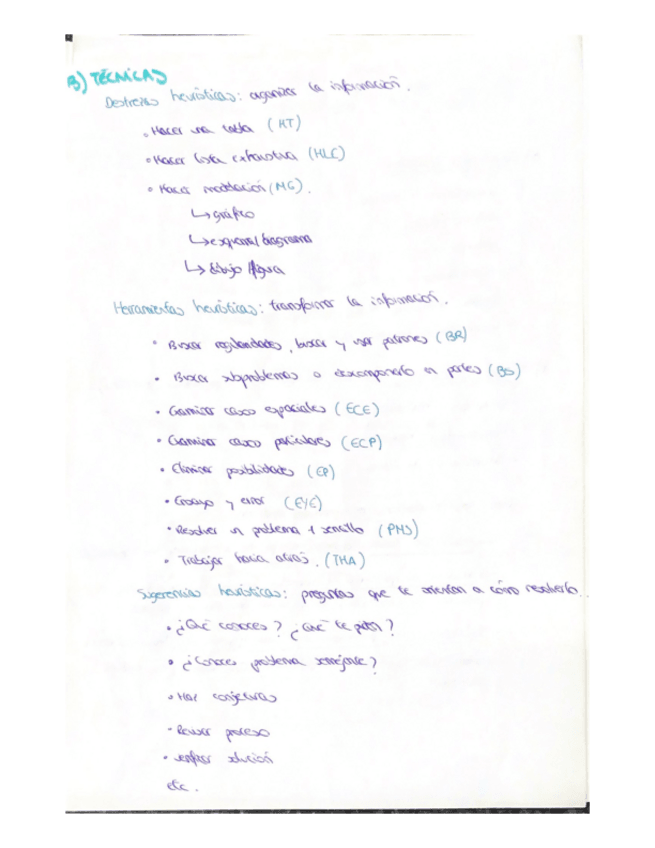 B) TÉCNICAS
Destrezas heurísticas: organizar la información.
• Hacer una tabla (HT)
• Hacer lista exhaustiva (HLE)
• Hacer modelación (MG).
↳ gráfico
↳ esquema/diagrama
↳ dibujo/figura
Herramientas heurísticas: transformar la información.
• Buscar regularidades, buscar y usar patrones (BR)
• Buscar subproblemas o descomponerlo en partes (BS)
• Examinar casos especiales (ECE)
• Examinar casos particulares (ECP)
• Eliminar posibilidades (EP)
• Ensayo y error (EYE)
• Resolver un problema + sencillo (PMS)
• Trabajar hacia atrás. (THA)
Sugerencias heurísticas: preguntas que te orientan a cómo resolverlo.
• ¿Qué conoces? ¿Qué te piden?
• ¿Conoces problema semejante?
• Haz conjeturas
• Revisar proceso
• verificar solución
etc.